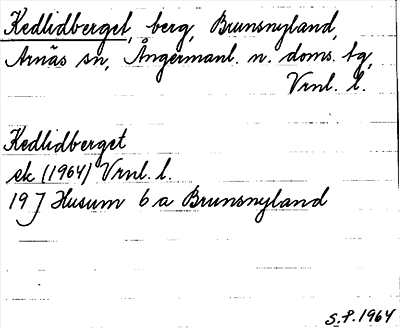 Kedlidberget, berg, Brunsnyland,
Arnäs sn, Ångermanl. n. doms. tg,
Vrnl. l.
Kedlidberget
ek (1964) Vrnl. l.
19 J Husum 6 a Brunsnyland
S.P. 1964